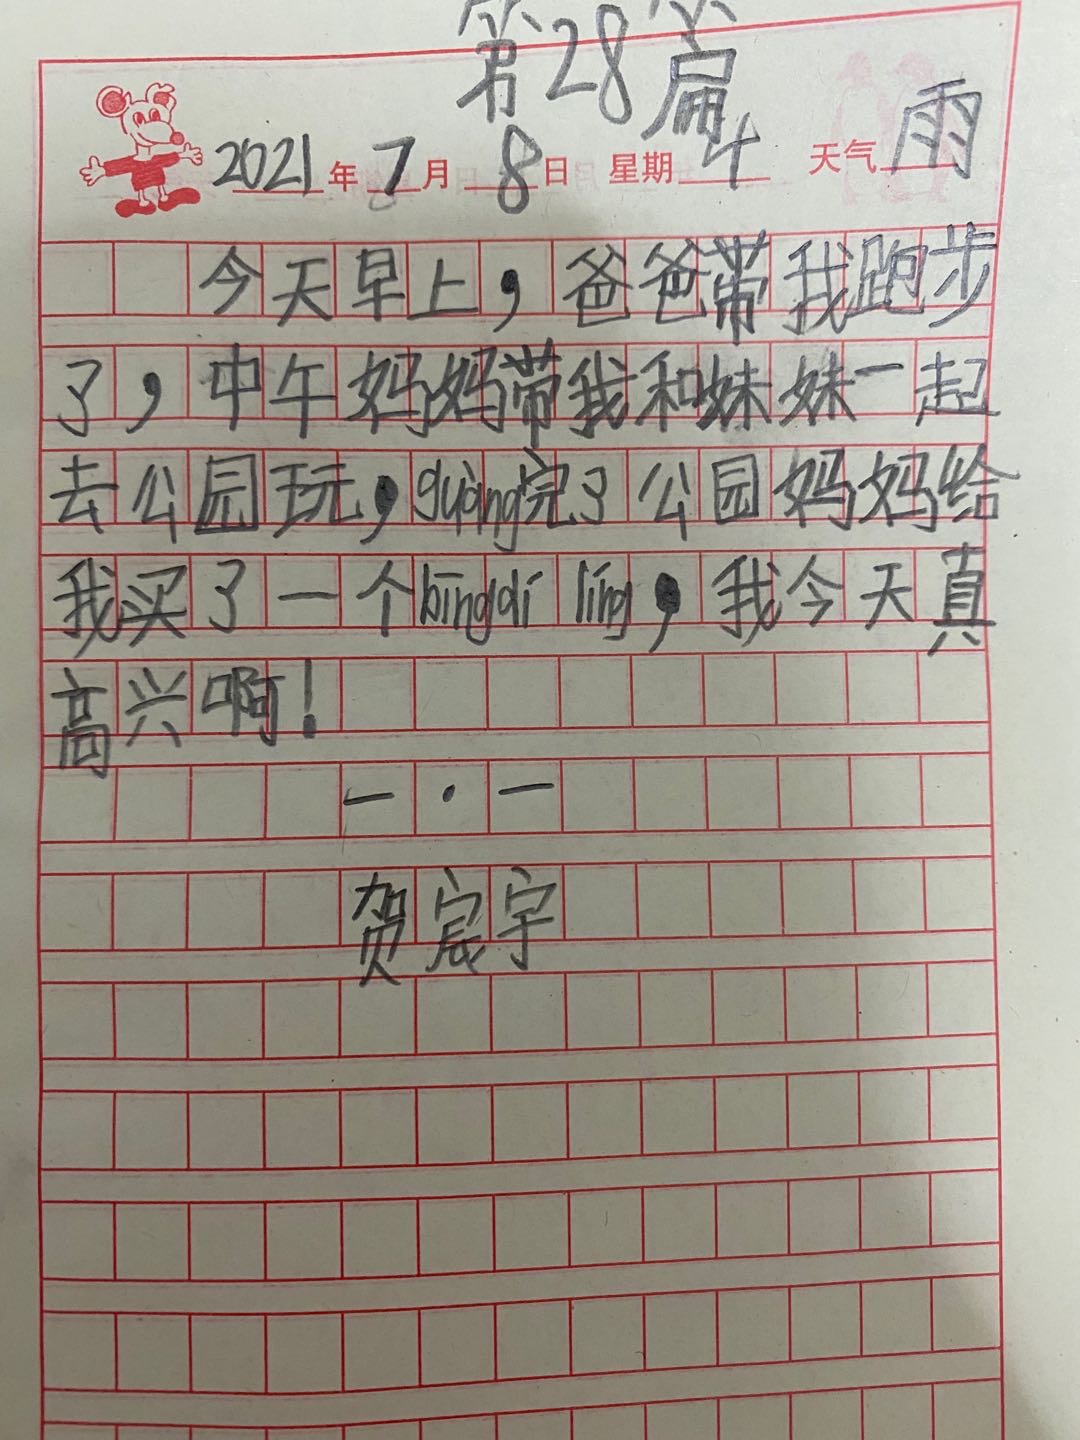 第28篇
2021年7月8日 星期4 天气雨
今天早上，爸爸带我跑步
了，中午妈妈带我和妹妹一起
去公园玩，guàng完了公园妈妈给
我买了一个bīngqí líng，我今天真
高兴啊！
一·一
贺宸宇